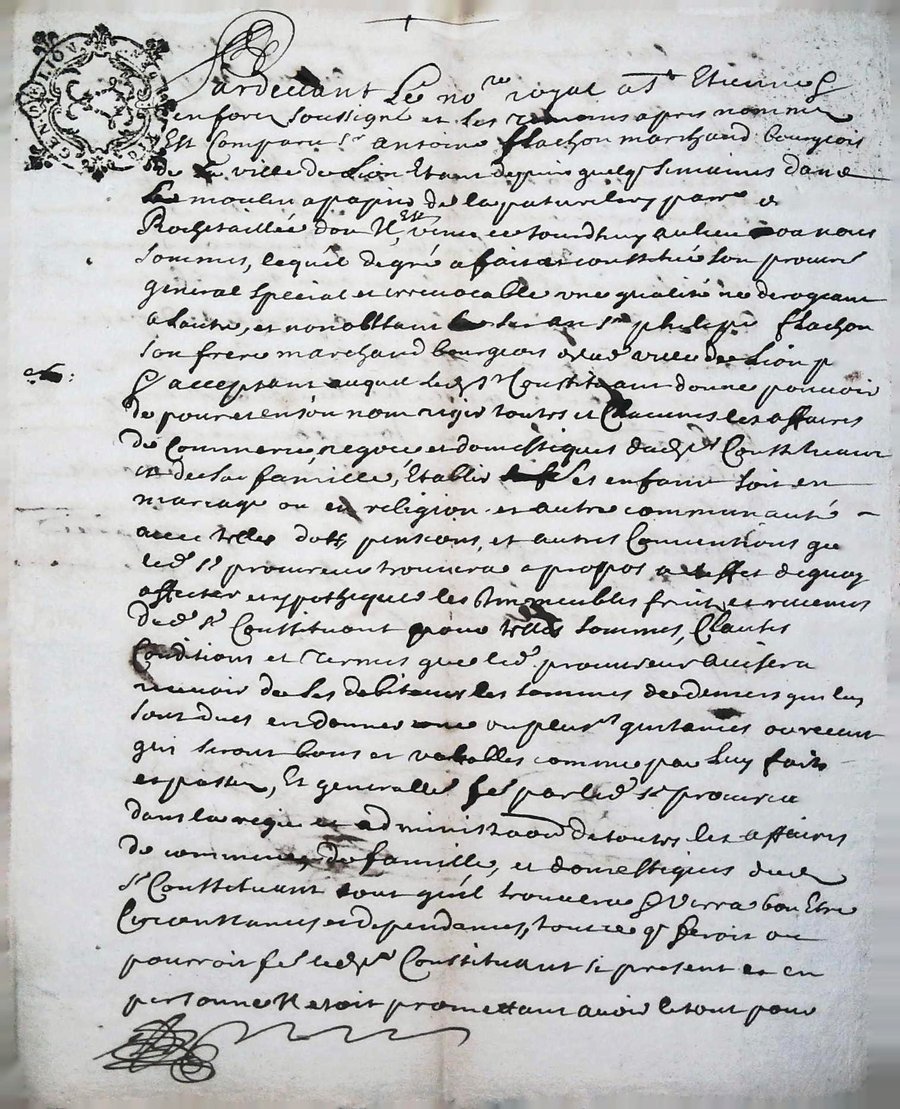 GEN DE LION
Pardevant Le no.re royal a St Etienne
en forez soussigné et les temoins apres nommés
Est Comparu sr antoine flachon marchand bourgeois
de la ville de Lion Etant depuis quelqs semaines dans
Le moulin a papier de la parr.e de
Rochetaillée d'ou Il Est venu ce jourdhuy au lieu ou nous
sommes, lequel de gré a fait et constitué son procureur
general special et irrevocable une qualité ne derogeant
a lautre, et nonobstant sr philipe flachon
son frere marchand bourgeois de lad. ville de Lion
acceptant auquel led. sr Constituant donne pouvoir
de pour et en son nom regir toutes et Chacunes les affaires
de Commerce, negoce et domestiques dud. sr Constituant
et de sa famille, Etablir ses enfans soit en
mariage ou en religion et autre communauté
avec telles dots, pensions, et autres Conventions que
led. sr procureur trouvera a propos a l'effet de quoy
affecter et ypothequer les Immeubles fruits et revenus
dud. sr Constituant pour telles sommes, Clauses
Conditions et Termes que led. procureur avisera
recevoir de ses debiteurs les sommes de deniers qui luy
sont dues en donner une ou plusrs quitances ou receus
qui seront bons et valables comme par Luy faits
et passés, Et generallement par led. sr procureur
dans la regie et administraon de toutes les affaires
de commerce, de famille, et domestiques dud.
sr Constituant tout qu'il trouvera Verra bon Etre
Circonstances et dependances, tout ce q. feroit ou
pourroit led. sr Constituant si present et en
personne Il etoit promettant avoir le tout pour